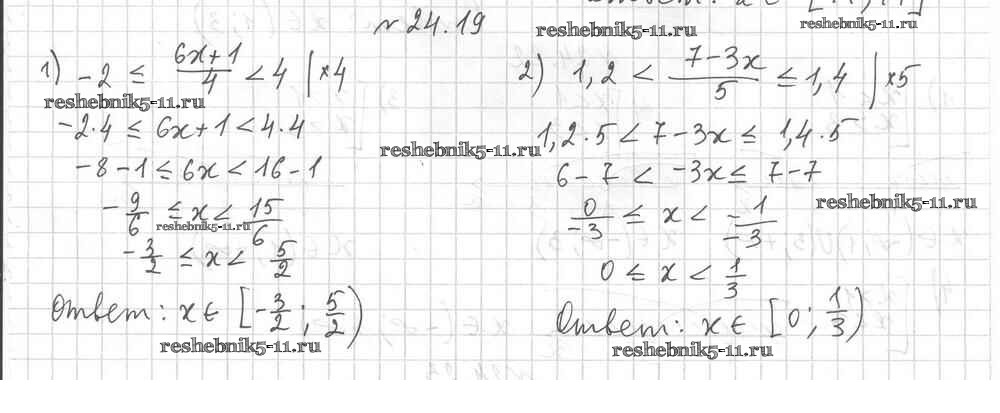 № 24.19
reshebnik5-11.ru
reshebnik5-11.ru
1) -2 ≤ (6x+1)/4 < 4 | ×4
reshebnik5-11.ru
-2·4 ≤ 6x+1 < 4·4
-8-1 ≤ 6x < 16-1
-9/6 ≤ x < 15/6
reshebnik5-11.ru
-3/2 ≤ x < 5/2
Ответ: x ∈ [-3/2; 5/2)
reshebnik5-11.ru
2) 1,2 < (7-3x)/5 ≤ 1,4 | ×5
1,2·5 < 7-3x ≤ 1,4·5
reshebnik5-11.ru
6-7 < -3x ≤ 7-7
reshebnik5-11.ru
0/-3 ≤ x < -1/-3
0 ≤ x < 1/3
Ответ: x ∈ [0; 1/3)
reshebnik5-11.ru